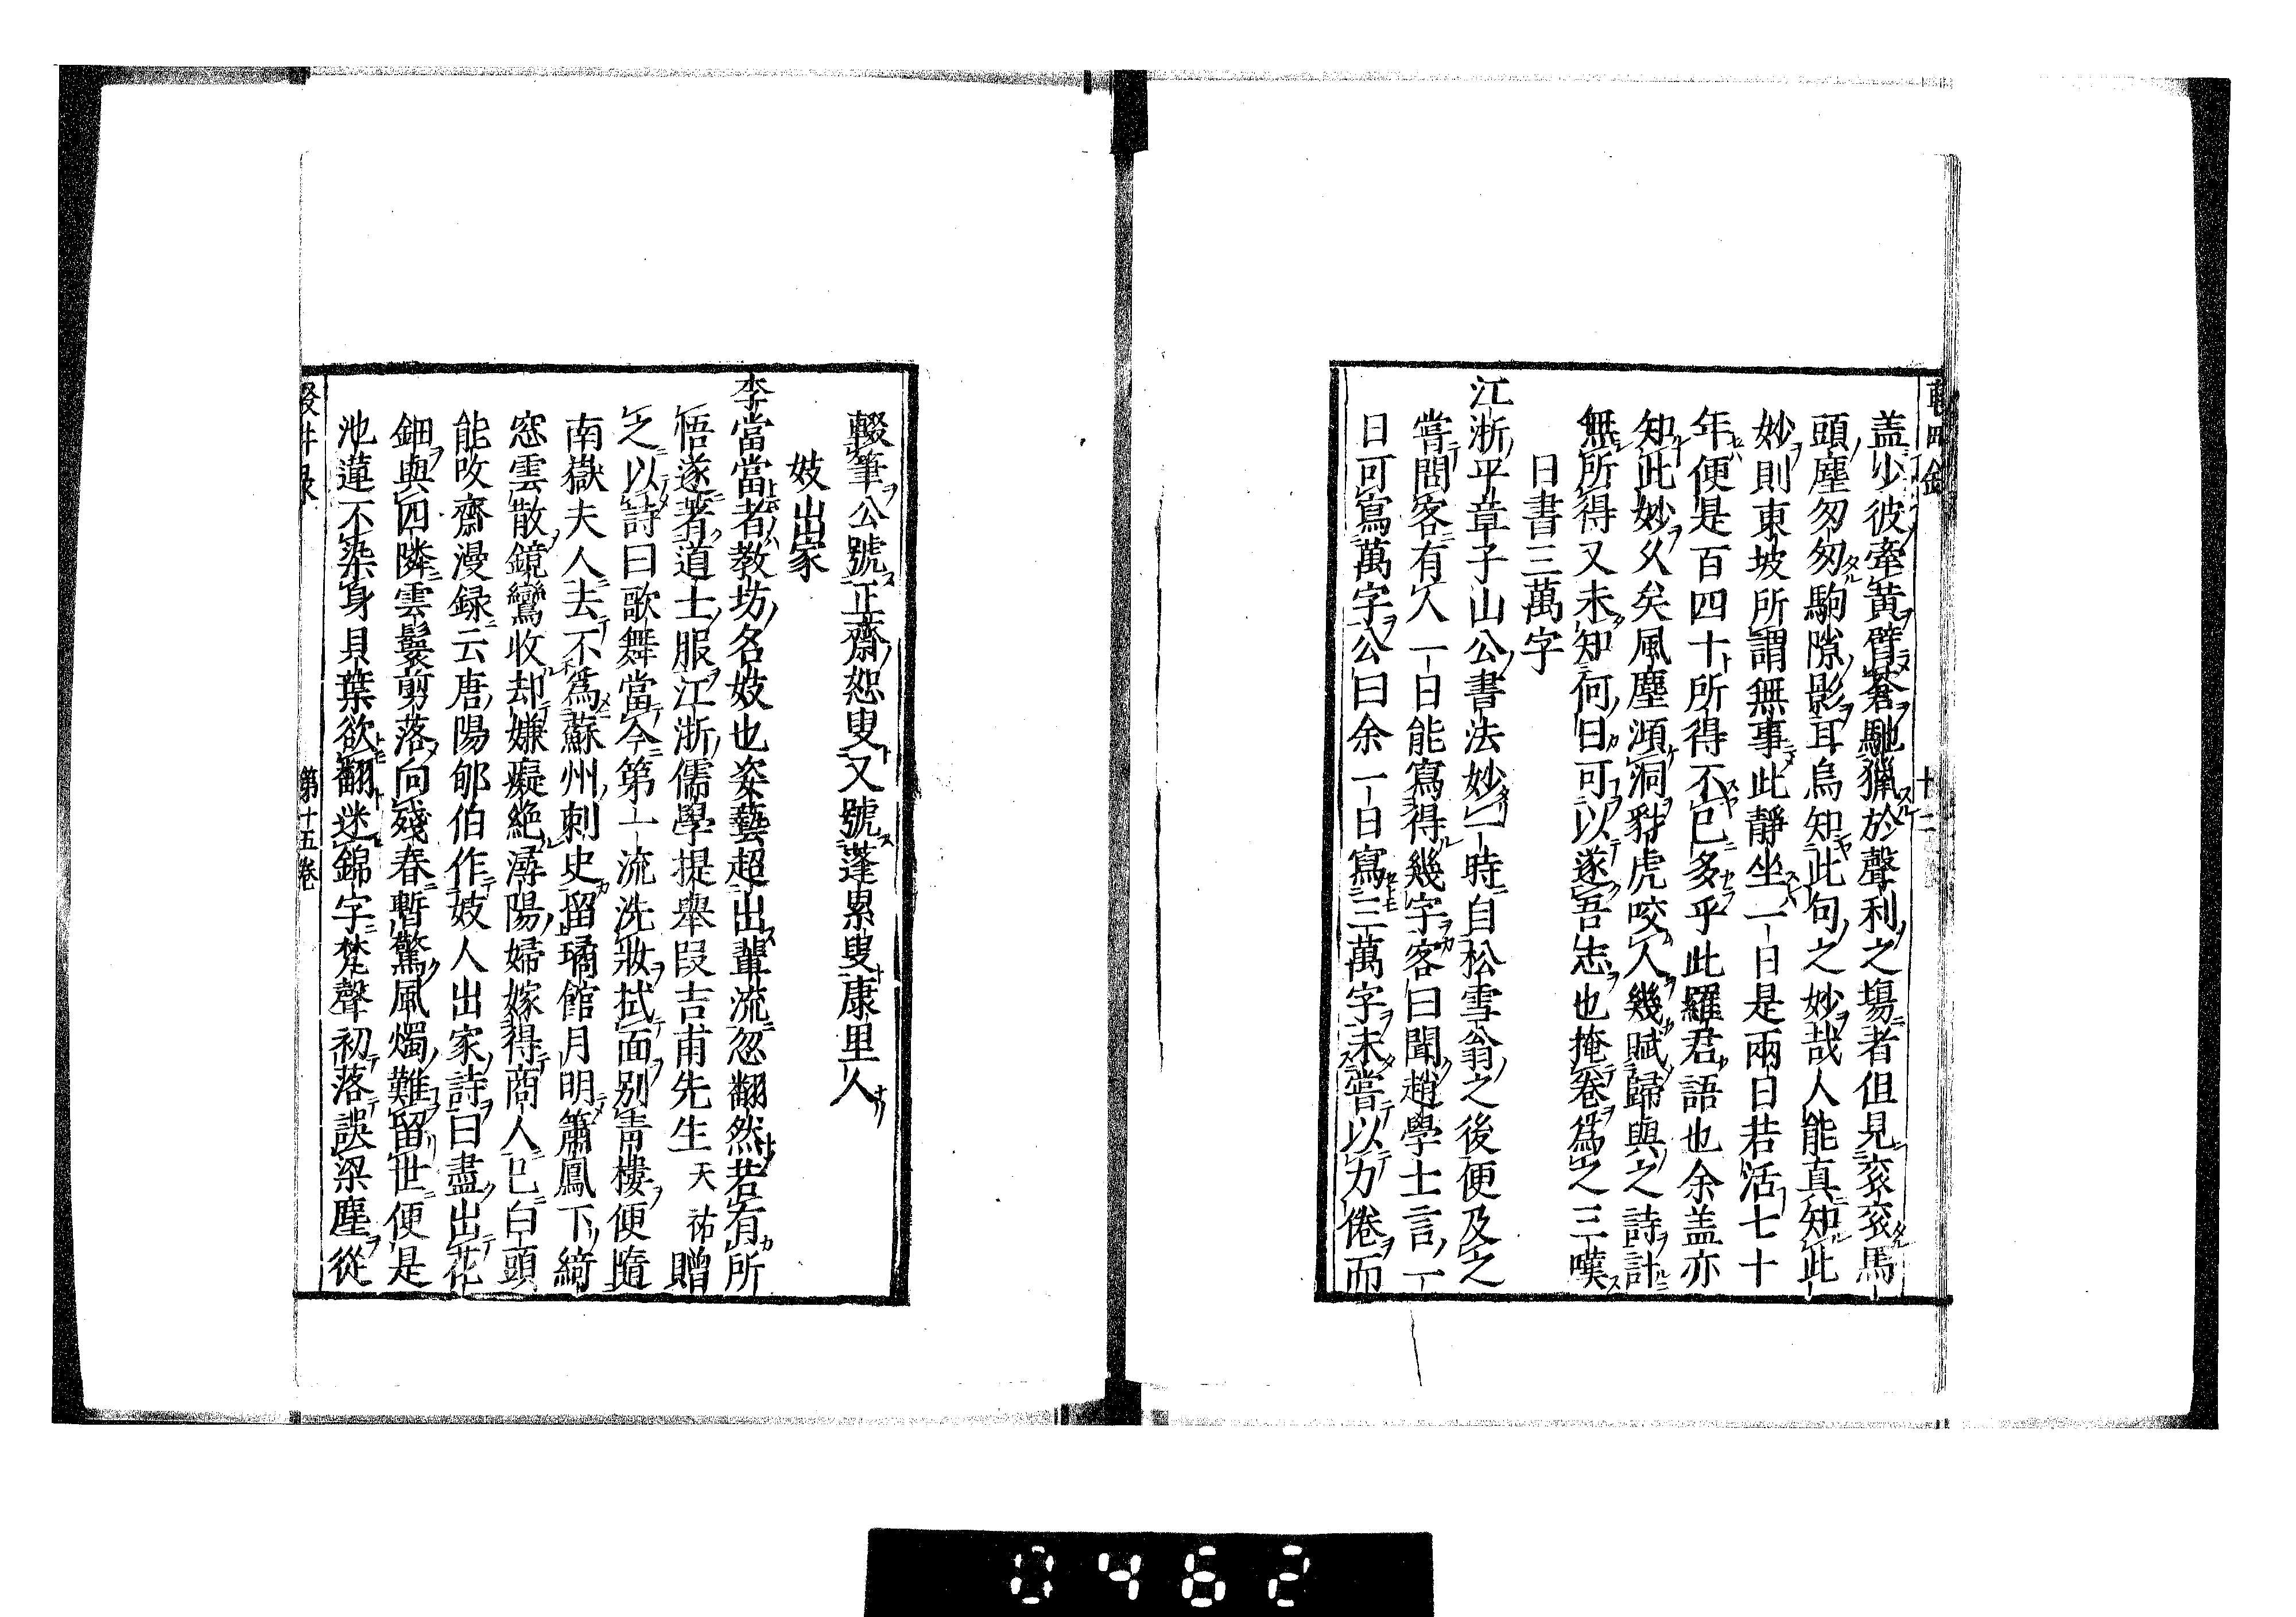 盖少彼牽黄臂蒼馳獵於聲利之塲者但見衮衮馬
頭塵匆匆駒隙影耳烏知此句之妙哉人能真知此
妙則東坡所謂無事此静坐一日是兩日若活七十
年便是百四十所得不已多乎此羅君語也余盖亦
知此妙乆矣風塵澒洞豺虎咬人幾賦歸與之詩計
無所得又未知何日可以遂吾志也掩卷爲之三嘆
日書三萬字
江浙平章子山公書法妙一時自松雪翁之後便及之
嘗問客有人一日能寫得幾字客曰聞趙學士言一
日可寫萬字公曰余一日寫三萬字未嘗以力倦而
輟筆公號正齋恕叟又號蓬累叟康里人
妓出家
李當當者教坊名妓也姿藝超出輩流忽翻然若有所
悟遂著道士服江浙儒學提舉段吉甫先生天祐贈
之以詩曰歌舞當今第一流洗妝拭面别青樓便隨
南嶽夫人去不爲蘇州刺史留璚館月明簫鳳下綺
窓雲散鏡鸞收却嫌癡絶潯陽婦嫁得商人已白頭
能攺齋漫録云唐陽郇伯作妓人出家詩曰盡出花
鈿與四隣雲鬟剪落向殘春暫驚風燭難留世便是
池蓮不染身貝葉欲翻迷錦字梵聲初落誤梁塵從
第十五卷